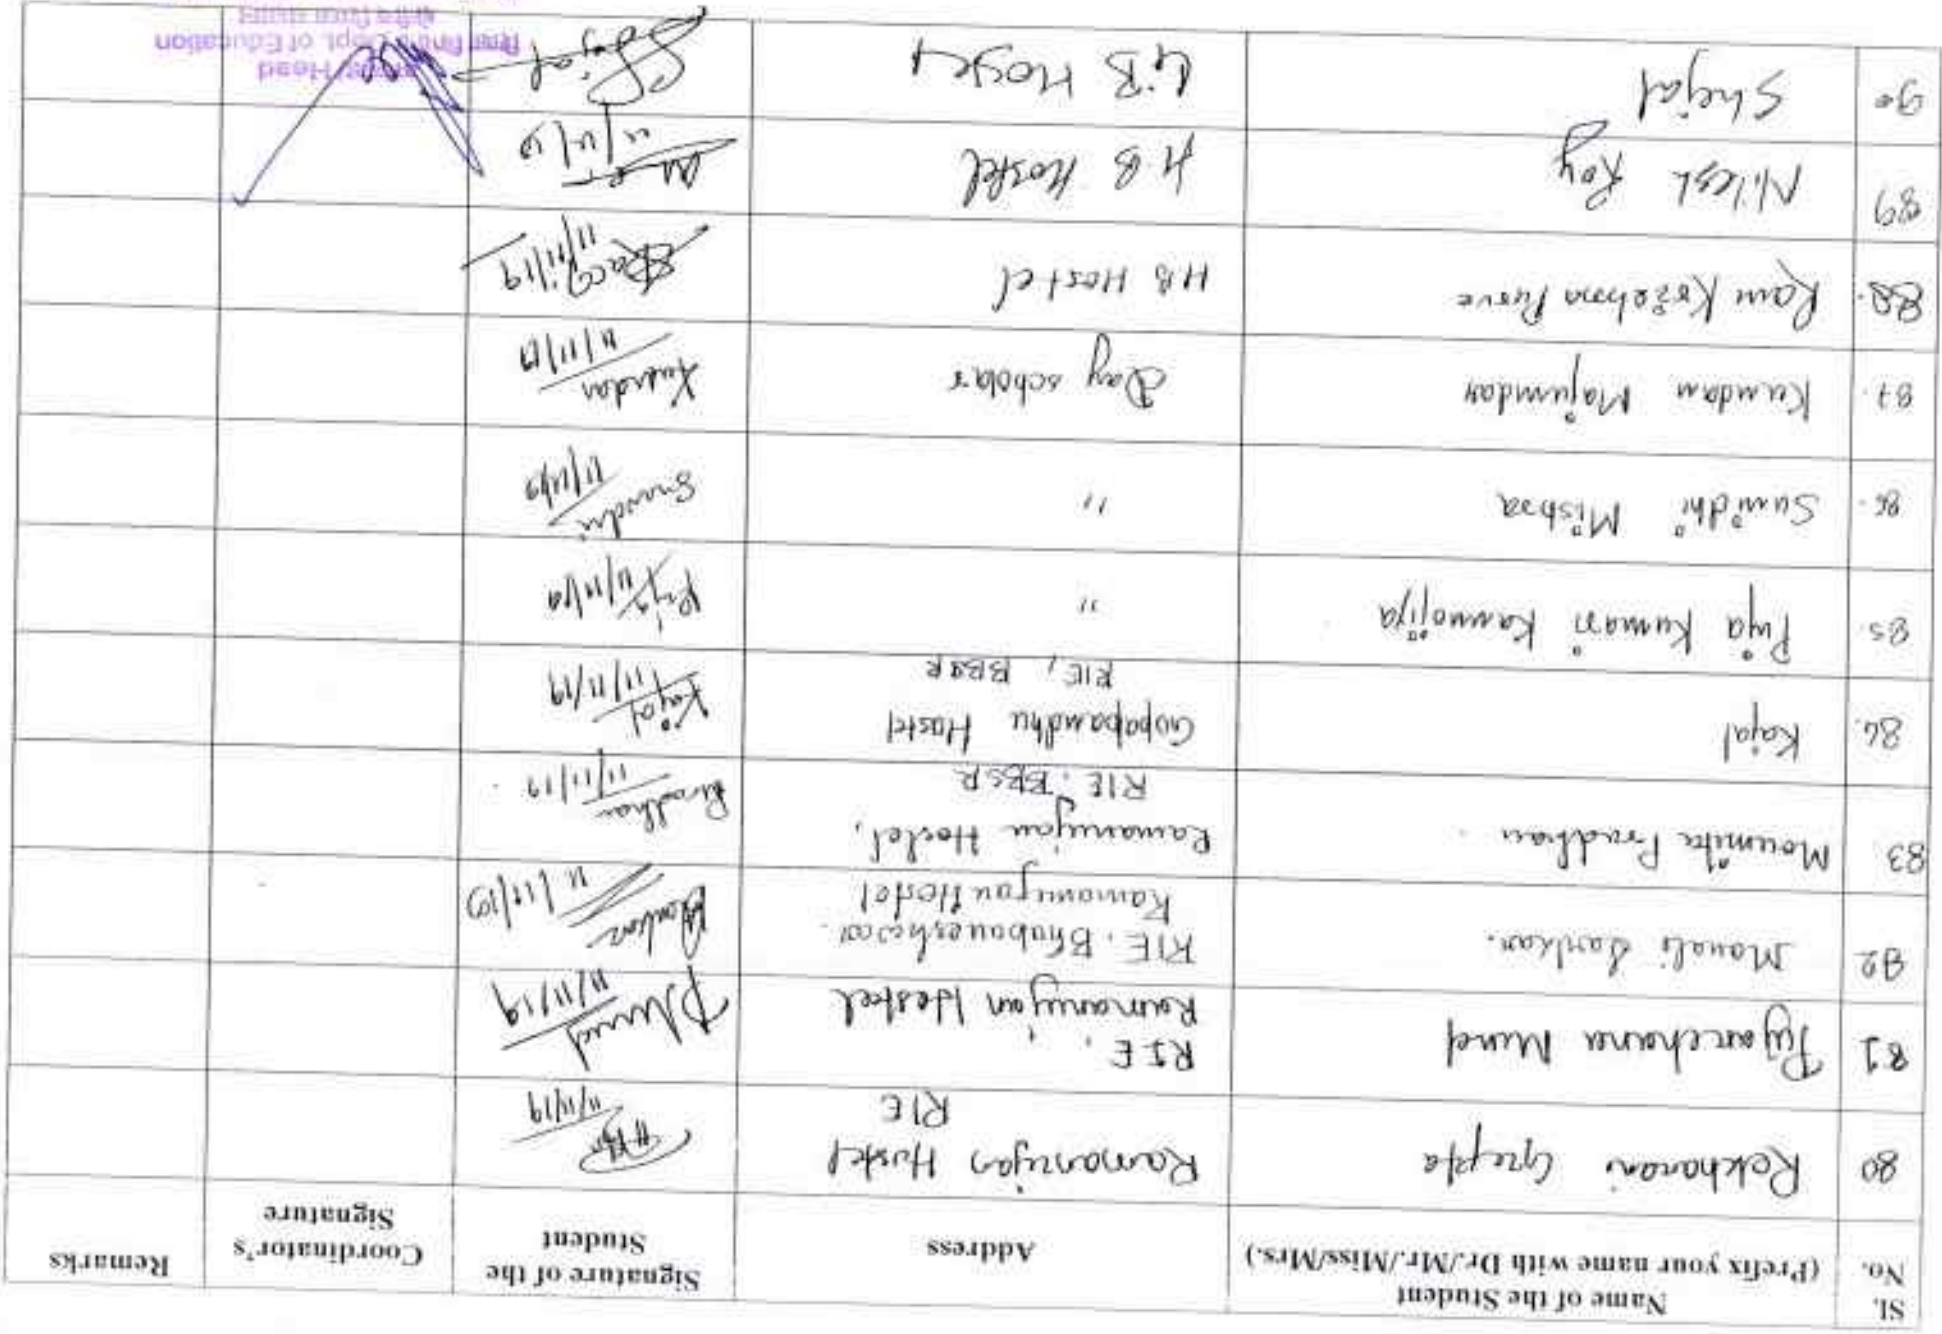 Sl. No.
Name of the Student
(Prefix your name with Dr./Mr./Miss/Mrs.)
Address
Signature of the Student
Coordinator's Signature
Remarks
80 Rekharani Gupta Ramanujan Hostel 11/11/19
RIE
81 Pujarchana Mund RIE, PMund 11/11/19
Ramanujan Hostel
82 Manali Sarkar. RIE. Bhubaneshwar. 11/11/19
Ramanujan Hostel
83 Moumita Pradhan. Ramanujan Hostel, Pradhan 11/11/19
RIE. BBSR
84. Kajal Gopabandhu Hostel Kajal 11/11/19
RIE, BBSR
85. Puja Kumari Kannojiya " Puja 11/11/19
86. Sunidhi Mishra " 11/11/19
87. Kundan Majumdar Day scholar Kundan 11/11/19
88. Ram Krishna Purve HB Hostel 11/11/19
89 Nilesh Roy H.B Hostel 11/11/19
90 Shejal G.B Hostel
Head
Dept. of Education